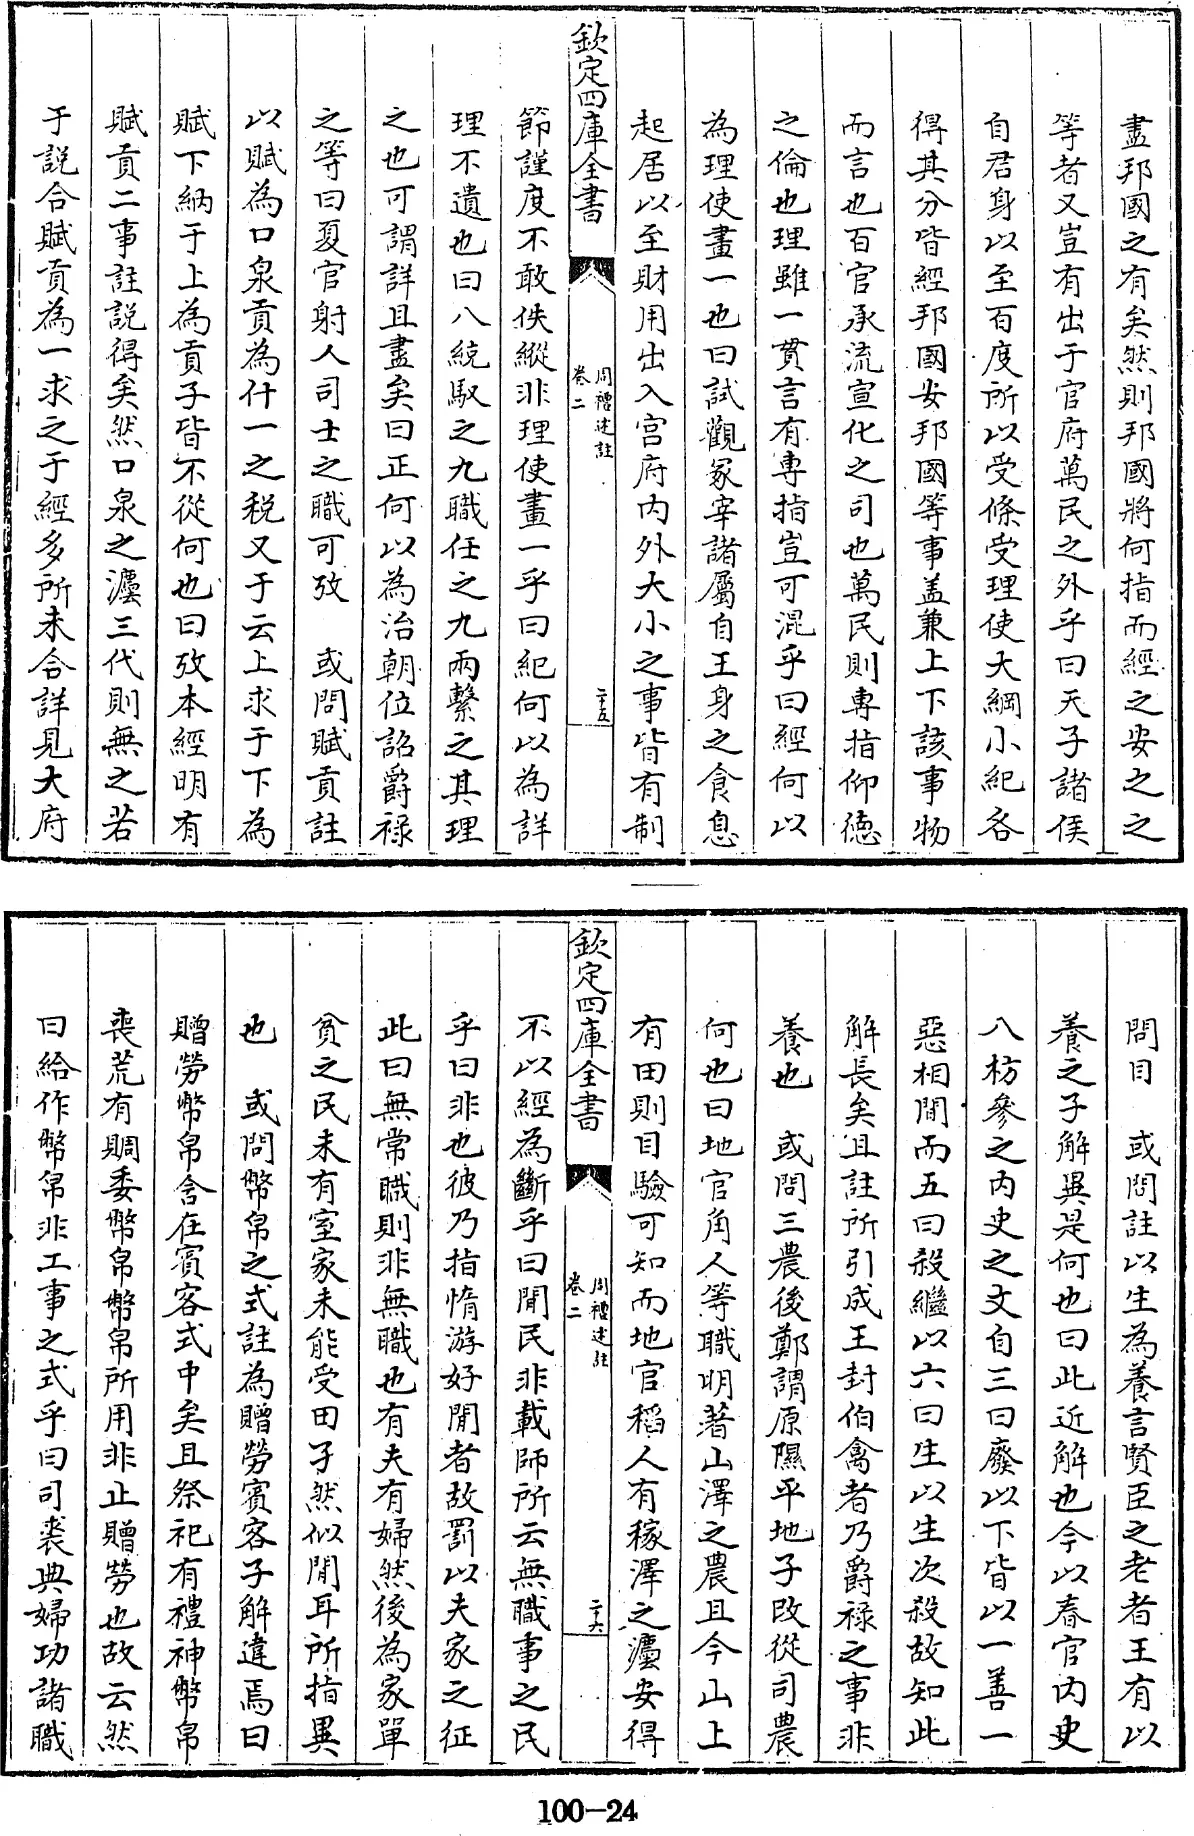 盡邦國之有矣然則邦國將何指而經之安之之
等者又豈有出于官府萬民之外乎曰天子諸侯
自君身以至百度所以受條受理使大綱小紀各
得其分皆經邦國安邦國等事盖兼上下該事物
而言也百官承流宣化之司也萬民則專指仰德
之倫也理雖一貫言有專指豈可混乎曰經何以
為理使畫一也曰試觀冢宰諸屬自王身之食息
起居以至財用出入宫府内外大小之事皆有制
欽定四庫全書
周禮述註
卷二
二十五
節謹度不敢佚縱非理使畫一乎曰紀何以為詳
理不遺也曰八統馭之九職任之九兩繫之其理
之也可謂詳且盡矣曰正何以為治朝位詔爵祿
之等曰夏官射人司士之職可攷　或問賦貢註
以賦為口泉貢為什一之税又于云上求于下為
賦下納于上為貢子皆不從何也曰攷本經明有
賦貢二事註説得矣然口泉之灋三代則無之若
于説合賦貢為一求之于經多所未合詳見大府
問目　或問註以生為養言賢臣之老者王有以
養之子解異是何也曰此近解也今以春官内史
八枋參之内史之文自三曰廢以下皆以一善一
惡相間而五曰殺繼以六曰生以生次殺故知此
解長矣且註所引成王封伯禽者乃爵祿之事非
養也　或問三農後鄭謂原隰平地子改從司農
何也曰地官角人等職明著山澤之農且今山上
有田則目驗可知而地官稻人有稼澤之灋安得
欽定四庫全書
周禮述註
卷二
二十六
不以經為斷乎曰閒民非載師所云無職事之民
乎曰非也彼乃指惰游好閒者故罰以夫家之征
此曰無常職則非無職也有夫有婦然後為家單
貧之民未有室家未能受田予然似閒耳所指異
也　或問幣帛之式註為贈勞賓客子解違焉曰
贈勞幣帛含在賓客式中矣且祭祀有禮神幣帛
喪荒有賙委幣帛幣帛所用非止贈勞也故云然
曰給作幣帛非工事之式乎曰司裘典婦功諸職
100-24